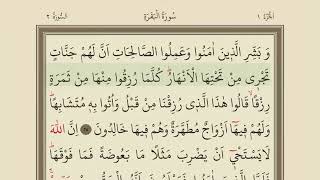 الجزء ١ سورة البقرة السورة ٢
وَ بَشِّرِ الَّذِينَ اٰمَنُوا وَعَمِلُوا الصَّالِحَاتِ اَنَّ لَهُمْ جَنَّاتٍ
تَجْرِى مِنْ تَحْتِهَا الْاَنْهَارُ كُلَّمَا رُزِقُوا مِنْهَا مِنْ ثَمَرَةٍ
رِزْقًا قَالُوا هٰذَا الَّذِى رُزِقْنَا مِنْ قَبْلُ وَاُتُوا بِهِ مُتَشَابِهًا
وَلَهُمْ فِيهَٓا اَزْوَاجٌ مُطَهَّرَةٌ وَهُمْ فِيهَا خَالِدُونَ اِنَّ اللّٰهَ
لَا يَسْتَحْيٖٓ اَنْ يَضْرِبَ مَثَلًا مَا بَعُوضَةً فَمَا فَوْقَهَا